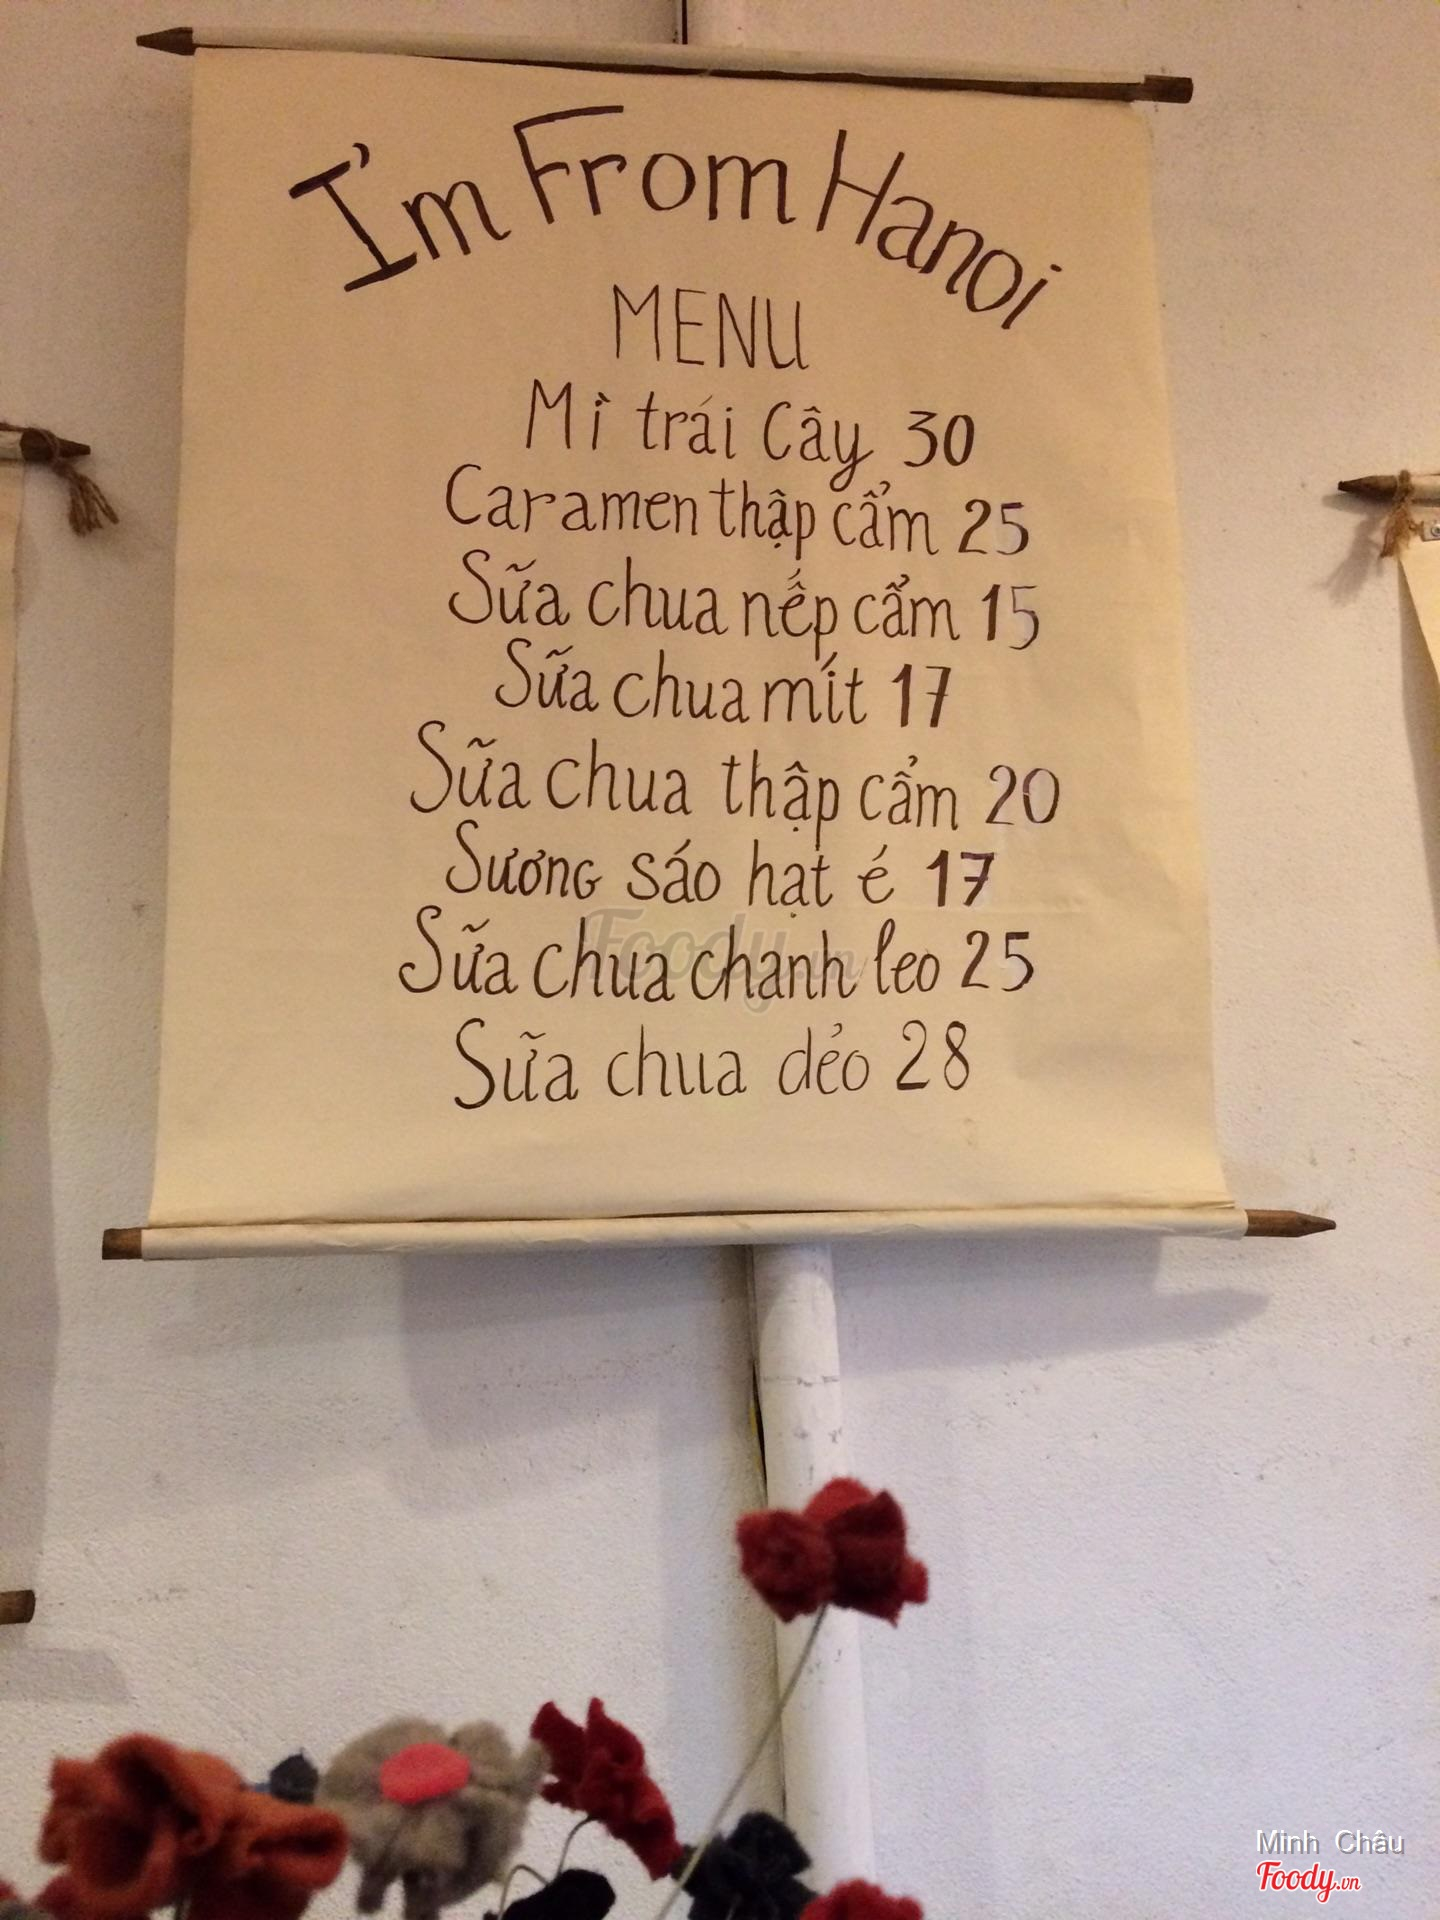 I'm From Hanoi
MENU
Mì trái Cây 30
Caramen thập cẩm 25
Sữa chua nếp cẩm 15
Sữa chua mít 17
Sữa chua thập cẩm 20
Sương sáo hạt é 17
Foody.vn
Sữa chua chanh leo 25
Sữa chua dẻo 28
Minh Châu
Foody.vn